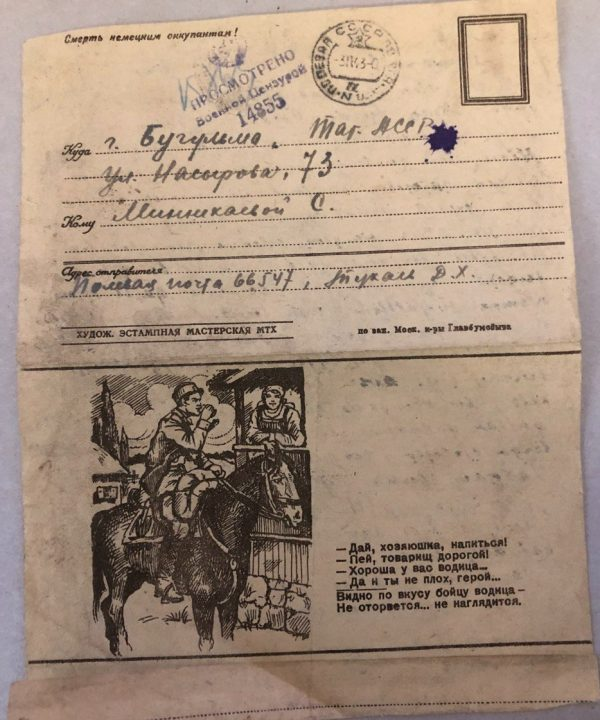 Смерть немецким оккупантам!
ПРОСМОТРЕНО
Военной Цензурой
14855
СССР
Куда г. Бугульма, Тат. АССР
ул. Насырова, 73
Кому Минникаевой С.
Адрес отправителя
Полевая почта 66547, Тукаев Д Х
ХУДОЖ. ЭСТАМПНАЯ МАСТЕРСКАЯ МТХ
по зак. Моск. к-ры Главбумсбыта
— Дай, хозяюшка, напиться!
— Пей, товарищ дорогой!
— Хороша у вас водица...
— Да и ты не плох, герой...
Видно по вкусу бойцу водица —
Не оторвется... не наглядится.